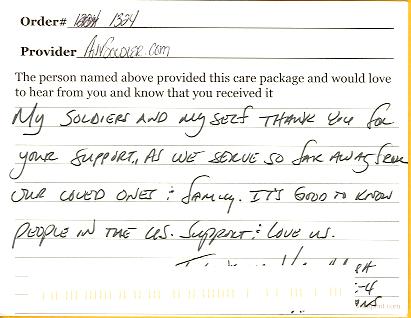 Order# 1324
Provider AnySoldier.com
The person named above provided this care package and would love
to hear from you and know that you received it
My Soldiers and myself thank you for
your support, As we serve so far away from
our loved ones & family. It's good to know
people in the US. Support & love us.